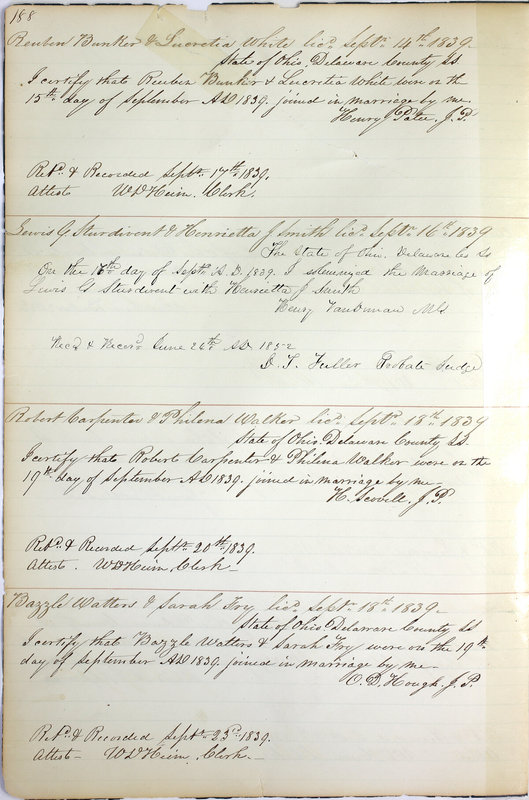 188
Reuben Bunker & Lucretia White licd. Septr. 14th 1839.
State of Ohio, Delaware County SS
I certify that Reuben Bunker & Lucretia White were on the
15th day of September AD 1839. joined in marriage by me.
Henry Patee, J.P.
Retd. & Recorded Septr. 17th 1839.
Attest W D Heim, Clerk.
Lewis G Sturdivent & Henrietta J Smith licd. Septr. 16th 1839
The State of Ohio, Delaware Co SS
On the 16th day of Septr. A.D. 1839. I solemnized the Marriage of
Lewis G Sturdivent with Henrietta J Smith
Henry Vandeman
Recd & Record June 26th AD 1852
D. T. Fuller Probate Judge
Robert Carpenter & Philena Walker licd. Septr. 18th 1839
State of Ohio. Delaware County SS
I certify that Robert Carpenter & Philena Walker were on the
19th day of September AD 1839. joined in marriage by me
H. Scovell, J.P.
Retd. & Recorded Septr. 20th 1839.
Attest. W D Heim, Clerk
Bazzle Watters & Sarah Fry licd. Septr. 18th 1839.
State of Ohio, Delaware County SS
I certify that Bazzle Watters & Sarah Fry were on the 19th
day of September AD 1839. joined in marriage by me
C. D. Hough. J.P.
Retd. & Recorded Septr. 23rd 1839.
Attest W D Heim, Clerk.